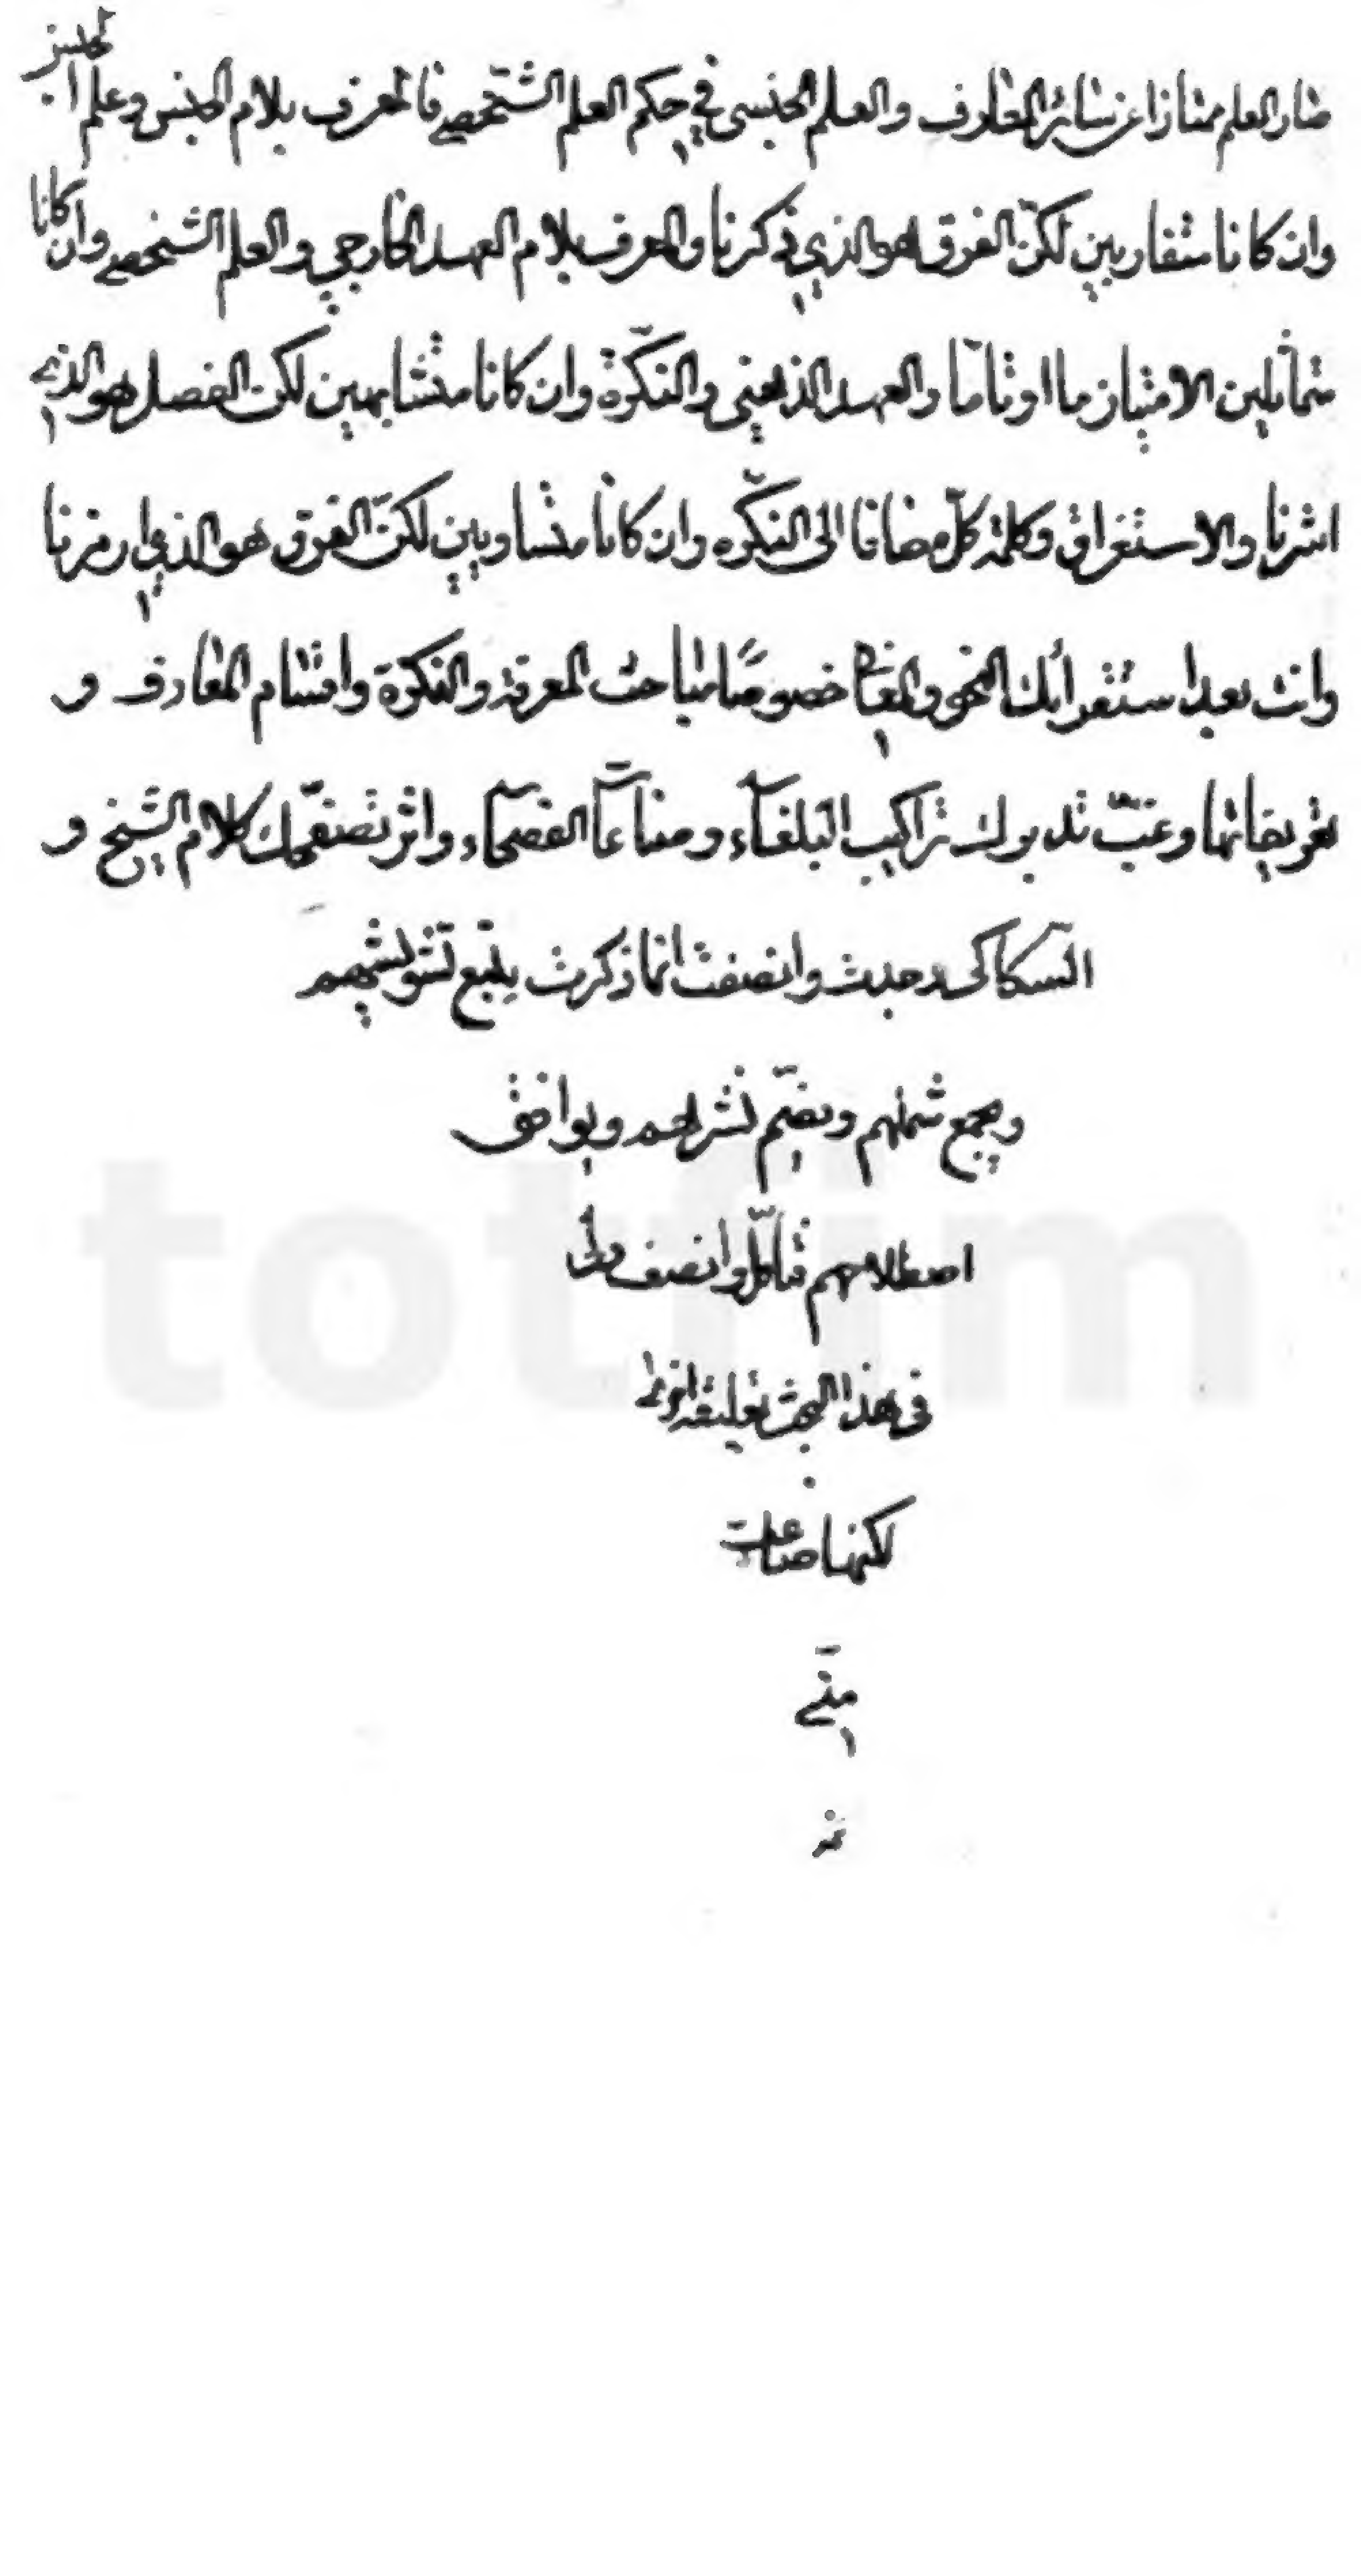 صار العلم ممتازا عن سائر المعارف والعلم الجنسي في حكم العلم الشخصي فالمعرف بلام الجنس وعلم الجنس
وان كانا متقاربين لكنّ الفرق هو الذي ذكرنا والمعرف بلام العهد الخارجي والعلم الشخصي وان كانا
متماثلين الامتياز ما اوتاما والعهد الذهني والنكرة وان كانا متشابهين لكن الفصل هو الذي
اشرنا والاستغراق وكلمة كلّ مضافا الى النكره وان كانا متساويين لكنّ الفرق هو الذي رمزنا
وانت بعد استقرائك النحو والمعاني خصوصًا مباحث المعرفة والنكرة واقسام المعارف و
تعريفاتها وغبّ تدبرك تراكيب البلغاء و الفصحاء واثر تصفّحك كلام الشيخ و
السكاكى وانصفت انما ذكرت يتبع تشويشهم
ويجمع شملهم ويضم نشرهم ويوافق
اصطلاحهم فتأمّل وانصف ولى
في هذا البحث تعليقة اخرى
لكنها ضاعت
منّي
تم
totfim